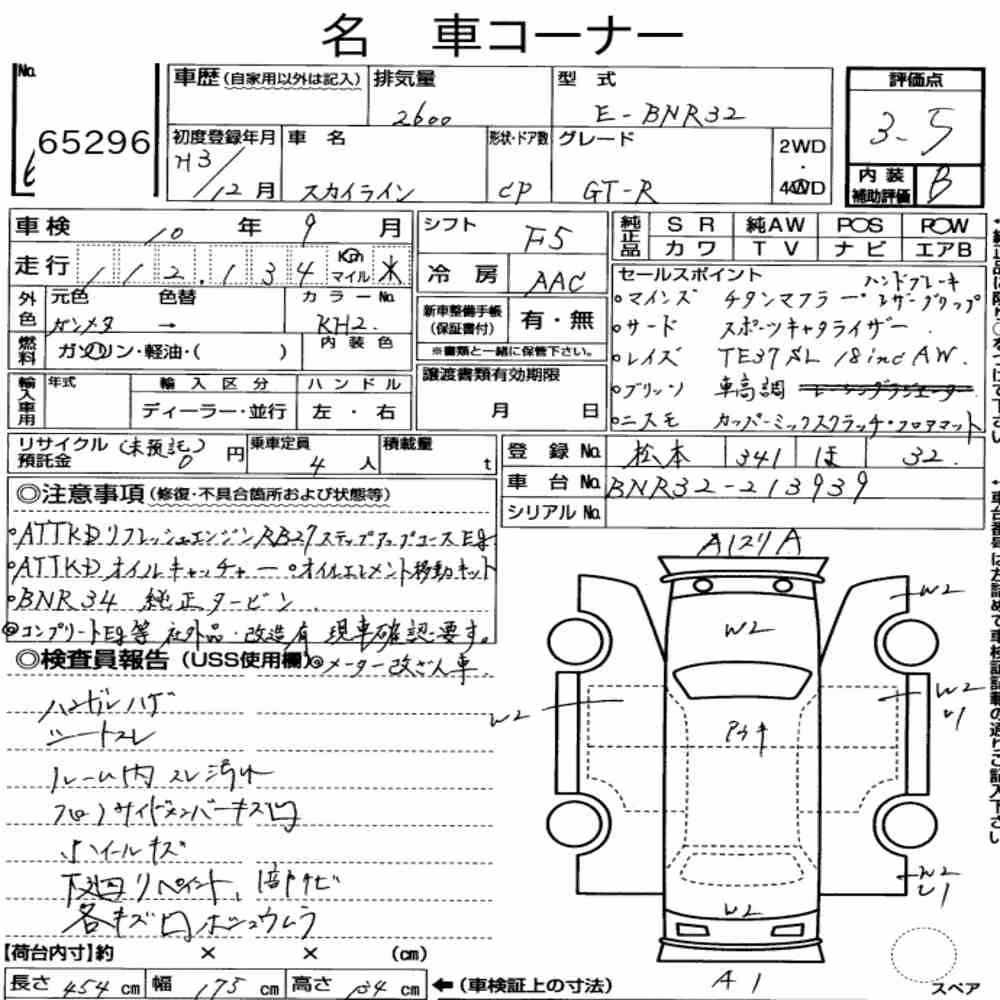 名 車コーナー
No. 65296
車歴(自家用以外は記入) 排気量 2600 型式 E-BNR32
初度登録年月 H3/12月 車名 スカイライン 形状・ドア数 CP グレード GT-R 2WD・4WD
評価点 3.5
内装補助評価 B
車検 10年9月 シフト F5
走行 112,134 Km マイル ※
冷房 AAC
純正品 SR 純AW PS PW
カワ TV ナビ エアB
外色 元色 ガンメタ → 色替 カラーNo. KH2
内装色
燃料 ガソリン・軽油・( )
新車整備手帳(保証書付) 有・無
※書類と一緒に保管下さい。
輸入車用 年式 輸入区分 ディーラー・並行 ハンドル 左・右
譲渡書類有効期限 月 日
セールスポイント
ハンドブレーキ
・マインズ チタンマフラー・レザーグリップ
・サード スポーツキャタライザー
・レイズ TE37SL 18inc AW.
・ブリッツ 車高調
・ニスモ カッパーミックスクラッチ・フロアマット
リサイクル預託金 (未預託) 0円 乗車定員 4人 積載量 t
登録No. 松本 341 ほ 32
車台No. BNR32-213939
シリアルNo.
◎注意事項(修復・不具合箇所および状態等)
・ATTKD リフレッシュエンジン RB27 ステップアップコース Eg
・ATTKD オイルキャッチャー ・オイルエレメント移動キット
・BNR34 純正タービン
◎コンプリートEg等 社外品・改造有 現車確認要す。
◎検査員報告(USS使用欄) ◎メーター改ざん車
ハンドルハゲ
シートスレ
ルーム内スレ汚れ
フロントサイドメンバーキズ凹
ホイールキズ
下廻リペイント、1部サビ
各キズ凹
【荷台内寸】約 × × (cm)
長さ 454 cm 幅 175 cm 高さ 134 cm ←(車検証上の寸法)
A1 スリA
W2
W2
W2
W2
アキ
W2
W2
A1
スペア